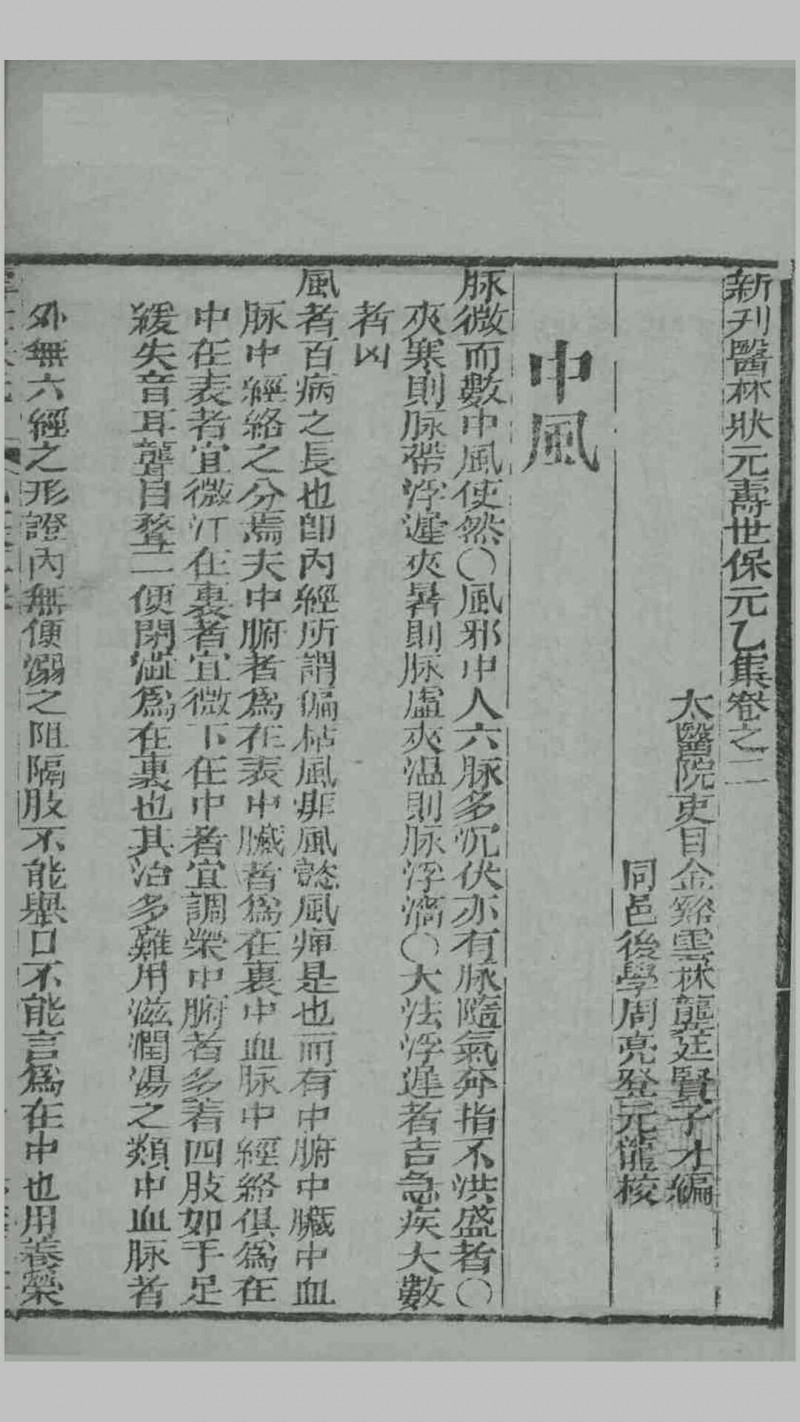 新刊醫林狀元壽世保元乙集卷之二
太醫院吏目金谿雲林龔廷賢子才編
同邑後學周亮登元儱校
中風
脉微而數中風使然○風邪中人六脉多沉伏亦有脉隨氣奔指下洪盛者○
夾寒則脉帶浮遲夾暑則脉虛夾温則脉浮濇○大法浮遲者吉急疾大數
者凶
風者百病之長也卽內經所謂偏枯風痱風懿風痺是也而有中腑中臟中血
脉中經絡之分焉夫中腑者爲在表中臟者爲在裏中血脉中經絡俱爲在
中在表者宜微汗在裏者宜微下在中者宜調榮中腑者多着四肢如手足
緩失音耳聾目瞀二便閉澁爲在裏也其治多難用滋潤湯之類中血脉者
外無六經之形證內無便溺之阻隔肢不能舉口不能言爲在中也用養榮